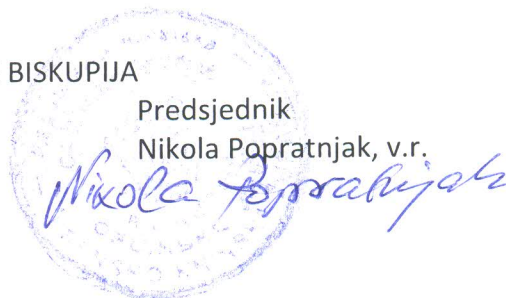 BISKUPIJA
Predsjednik
Nikola Popratnjak, v.r.
Nikola Popratnjak